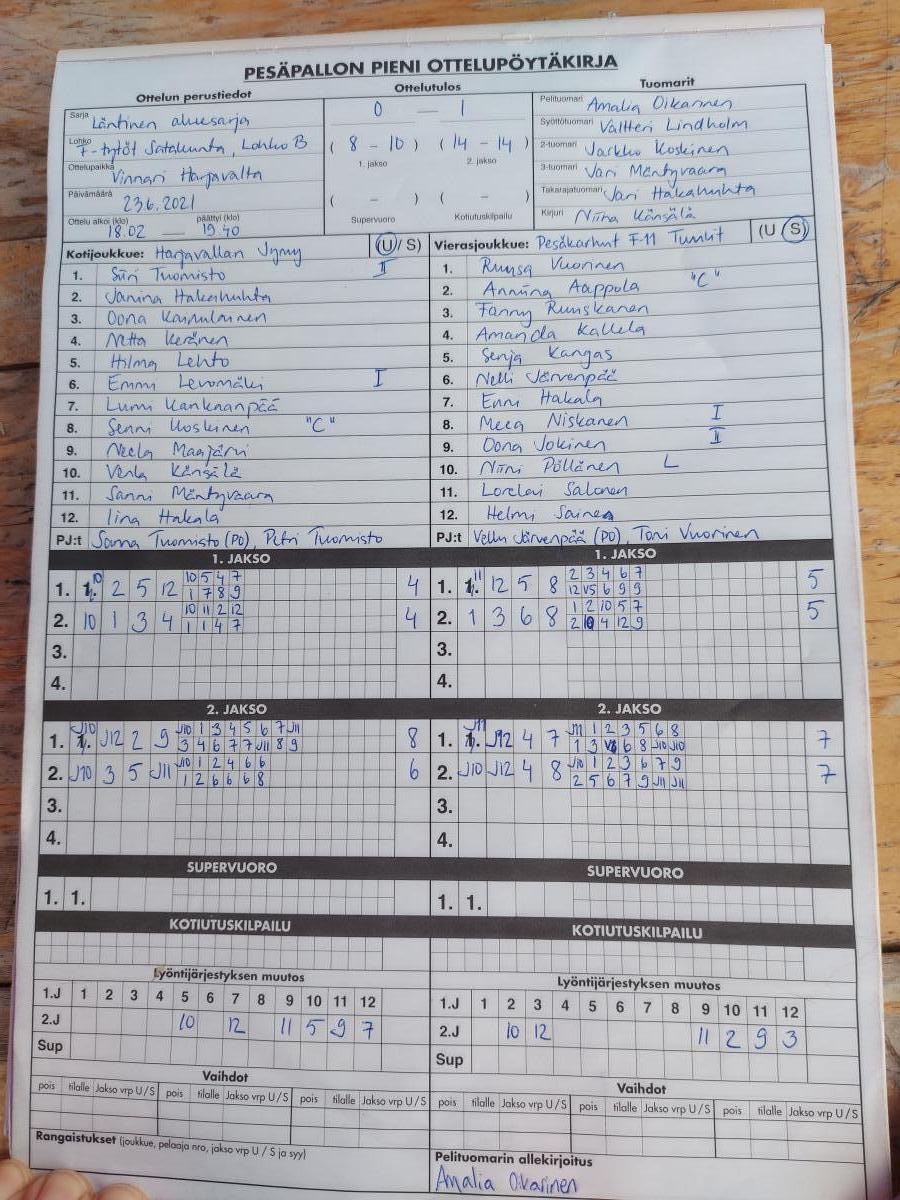 PESÄPALLON PIENI OTTELUPÖYTÄKIRJA
Ottelun perustiedot
Ottelutulos
Tuomarit
Sarja Läntinen aluesarja
0 — 1
Pelituomari Amalia Oikarinen
Lohko F-tytöt Satakunta, Lohko B
( 8 - 10 ) ( 14 - 14 )
1. jakso 2. jakso
Syöttötuomari Valtteri Lindholm
Ottelupaikka Vinnari Harjavalta
2-tuomari Jarkko Koskinen
Päivämäärä 23.6.2021
( - ) ( - )
Supervuoro Kotiutuskilpailu
3-tuomari Jari Mäntyvaara
Takarajatuomari Jari Hakahuhta
Ottelu alkoi (klo) 18.02 — päättyi (klo) 19.40
Kirjuri Niina Känsälä
Kotijoukkue: Harjavallan Jymy (U / S)
Vierasjoukkue: Pesäkarhut F-11 Tumlit (U / S)
1. Siiri Tuomisto II
2. Janina Hakahuhta
3. Oona
4. Netta Keränen
5. Hilma Lehto
6. Emmi Levomäki I
7. Lumi Kankaanpää
8. Senni Koskinen "C"
9. Neela Maajärvi
10. Venla Känsälä
11. Sanni Mäntyvaara
12. Iina Hakala
PJ:t Sanna Tuomisto (PO), Petri Tuomisto
1. Ruusa Vuorinen
2. Anniina Aappola "C"
3. Fanny Ruuskanen
4. Amanda Kallela
5. Senja Kangas
6. Nelli Järvenpää
7. Enni Hakala
8. Meea Niskanen I
9. Oona Jokinen II
10. Niini Pöllänen L
11. Lorelai Salonen
12. Helmi Sainea
PJ:t Vellu Järvenpää (PO), Toni Vuorinen
1. JAKSO
1. 1. 10 2 5 12 10 5 4 7 4
1 7 8 9
2. 10 1 3 4 10 11 2 12 4
1 1 4 7
3.
4.
1. JAKSO
1. 1. 11 12 5 8 2 3 4 6 7 5
12 V5 6 9 9
2. 1 3 6 8 1 2 10 5 7 5
2 10 4 12 9
3.
4.
2. JAKSO
1. 1. J10 J12 2 9 J10 1 3 4 5 6 7 J11 8
3 4 6 7 7 J11 8 9
2. J10 3 5 J11 J10 1 2 4 6 6 6
1 2 6 6 6 8
3.
4.
2. JAKSO
1. 1. J11 J12 4 7 J11 1 2 3 5 6 8 7
1 3 V6 6 8 J10 J10
2. J10 J12 4 8 J10 1 2 3 6 7 9 7
2 5 6 7 9 J11 J11
3.
4.
SUPERVUORO
1. 1.
SUPERVUORO
1. 1.
KOTIUTUSKILPAILU
KOTIUTUSKILPAILU
Lyöntijärjestyksen muutos
1.J 1 2 3 4 5 6 7 8 9 10 11 12
2.J 10 12 11 5 9 7
Sup
Lyöntijärjestyksen muutos
1.J 1 2 3 4 5 6 7 8 9 10 11 12
2.J 10 12 11 2 9 3
Sup
Vaihdot
pois tilalle Jakso vrp U / S pois tilalle Jakso vrp U / S pois tilalle Jakso vrp U / S
Vaihdot
pois tilalle Jakso vrp U / S pois tilalle Jakso vrp U / S pois tilalle Jakso vrp U / S
Rangaistukset (joukkue, pelaaja nro, jakso vrp U / S ja syy)
Pelituomarin allekirjoitus
Amalia Oikarinen